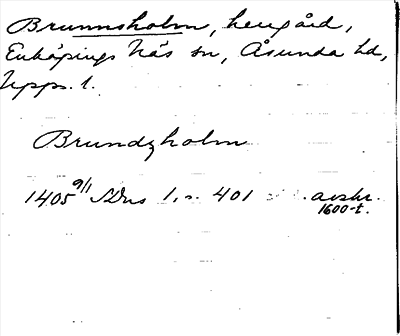 Brunnsholm, herrgård,
Enköpings Näs sn, Åsunda hd,
Upps. l.
Brundzholm
1405 9/1 SDns 1, s. 401 avskr.
1600-t.